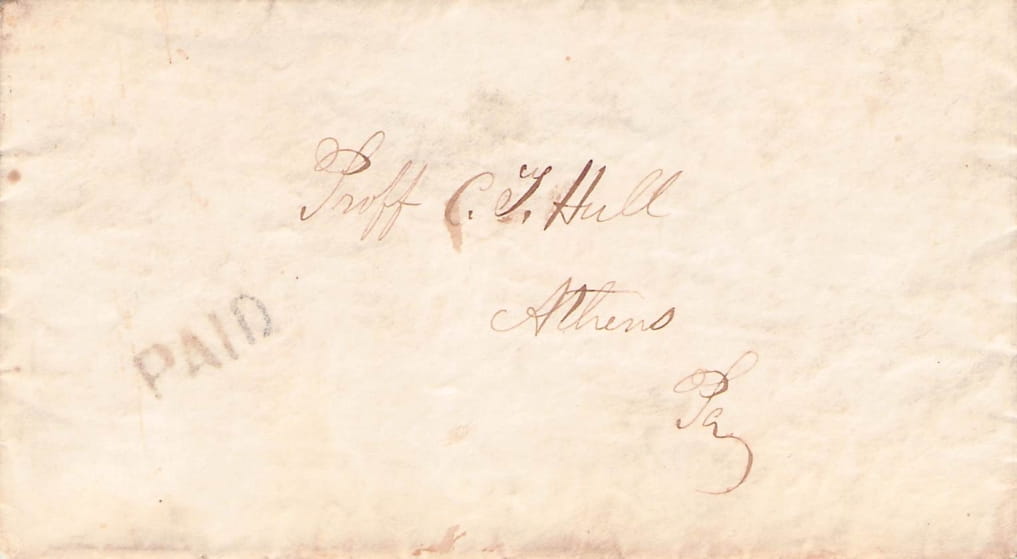 Proff C. T. Hull
Athens
Pa
PAID